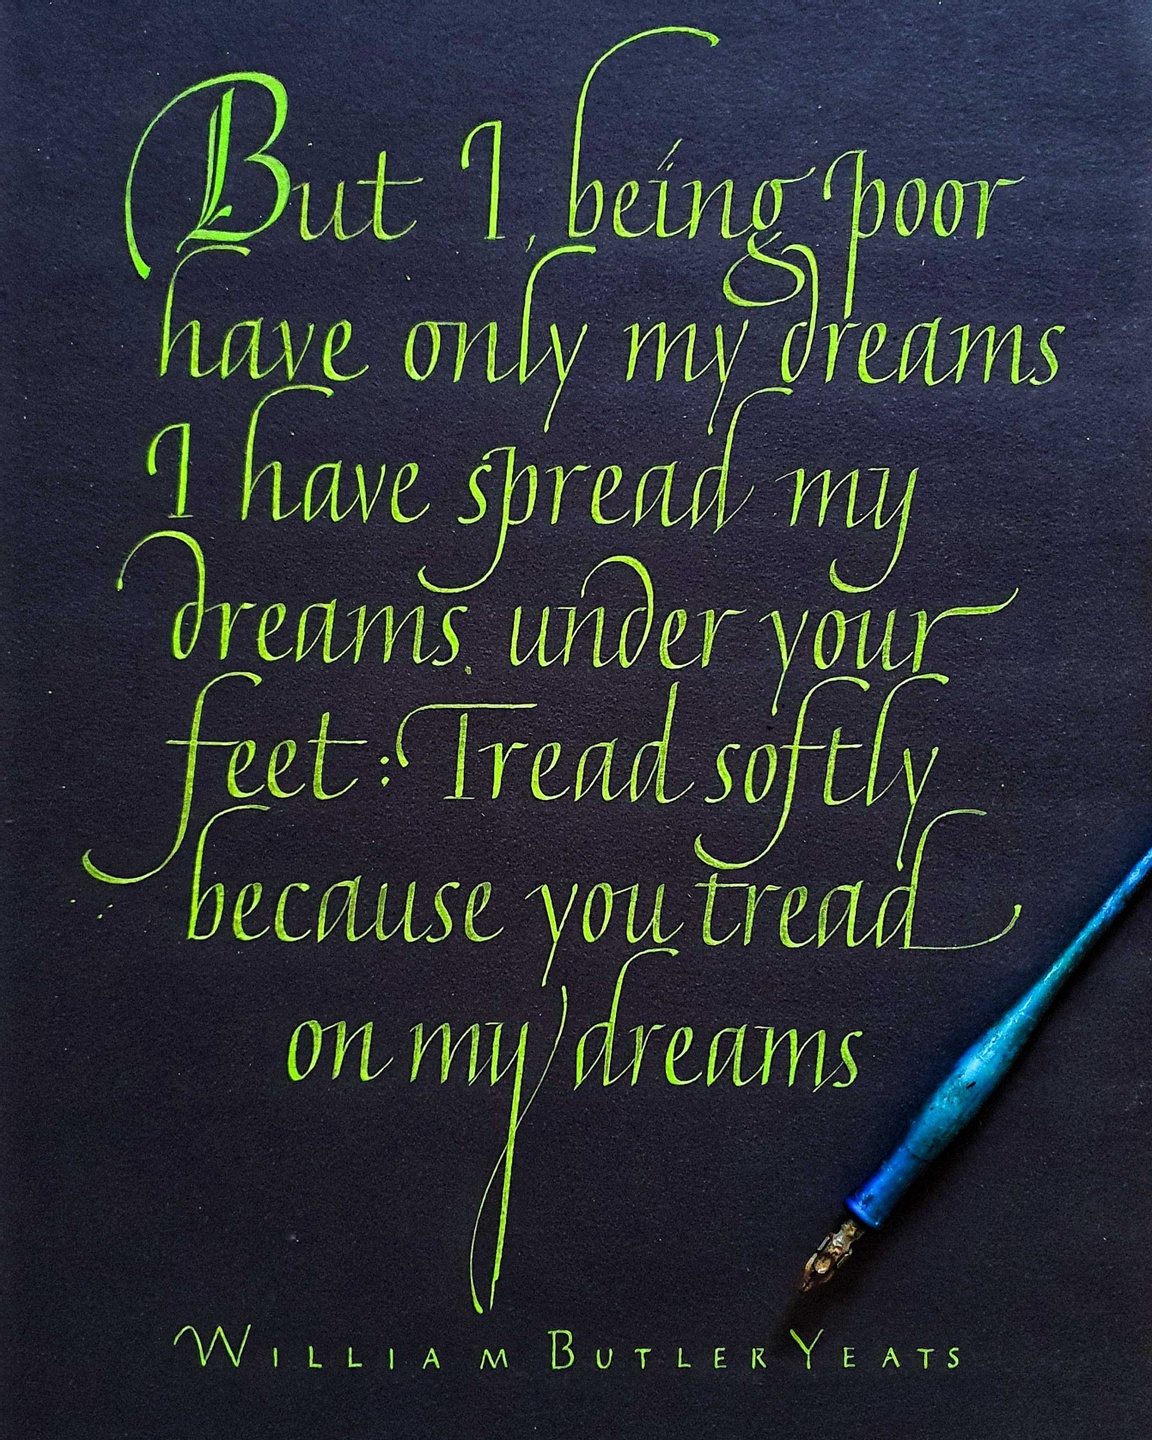 But I, being poor
have only my dreams
I have spread my
dreams under your
feet: Tread softly
because you tread
on my dreams
William Butler Yeats